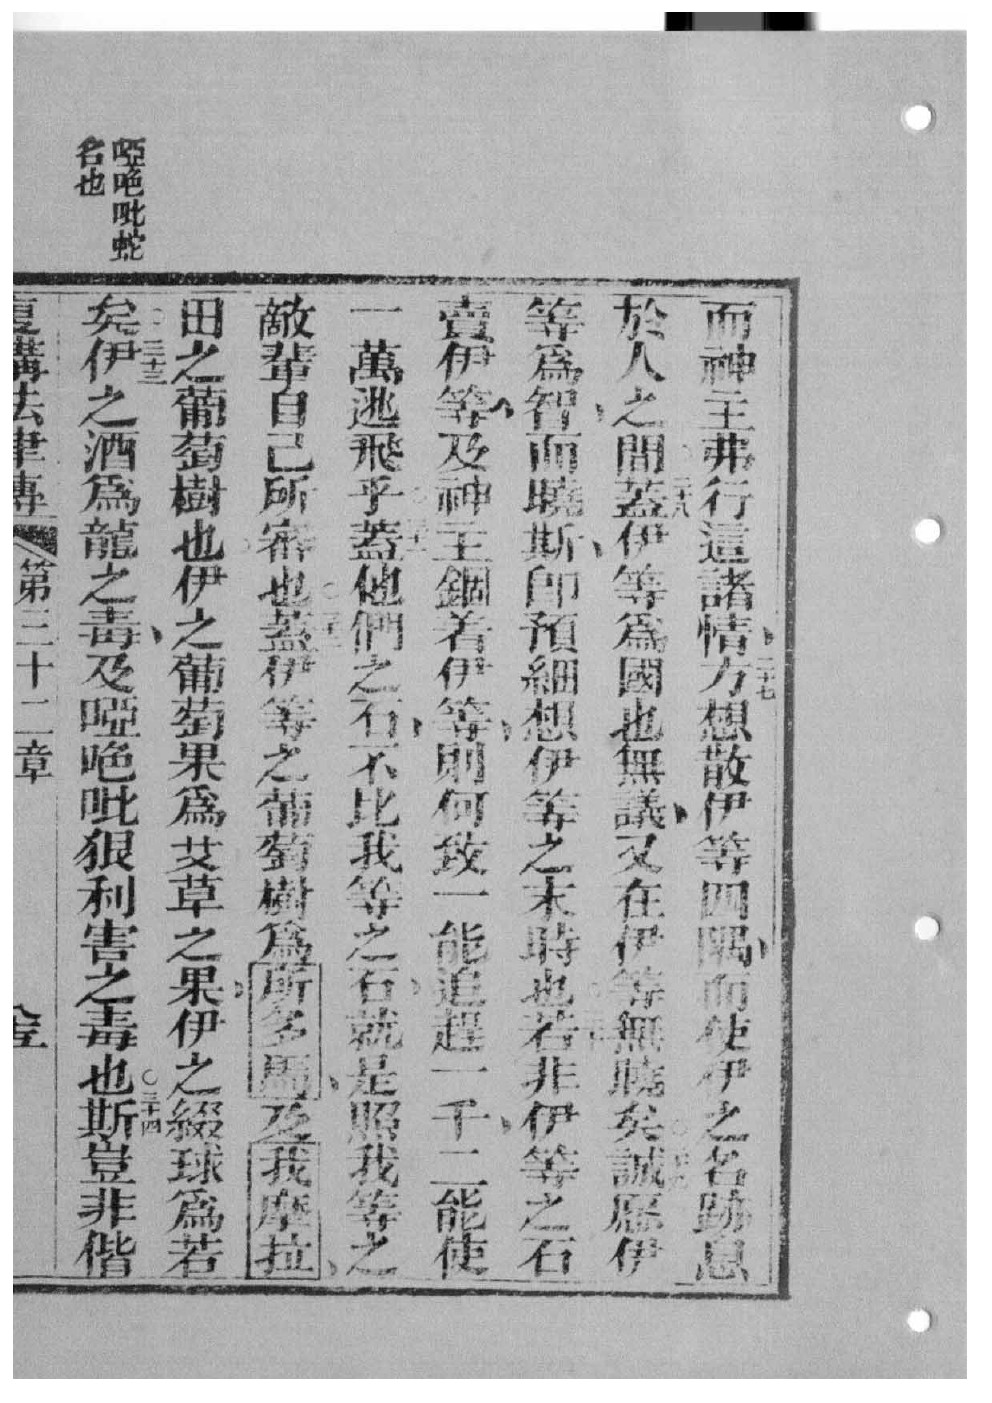 啞𠵽吡蛇
名也
而神主弗行這諸情二十七方想散伊等四隅而使伊之名跡息
於人之間二十八蓋伊等爲國也無議又在伊等無曉矣誠愿伊
等爲智而曉斯卽預細想伊等之末時也若非伊等之石
賣伊等及神主錮着伊等則何致一能追趕一千二能使
一萬逃飛乎蓋他們之石不比我等之石就是照我等之
敵輩自己所審也蓋伊等之葡萄樹爲所多馬及我摩拉
田之葡萄樹也伊之葡萄果爲艾草之果伊之綴球爲若
矣三十三伊之酒爲龍之毒及啞𠵽吡狠利害之毒也三十四斯豈非偕
復講法律傳 第三十二章